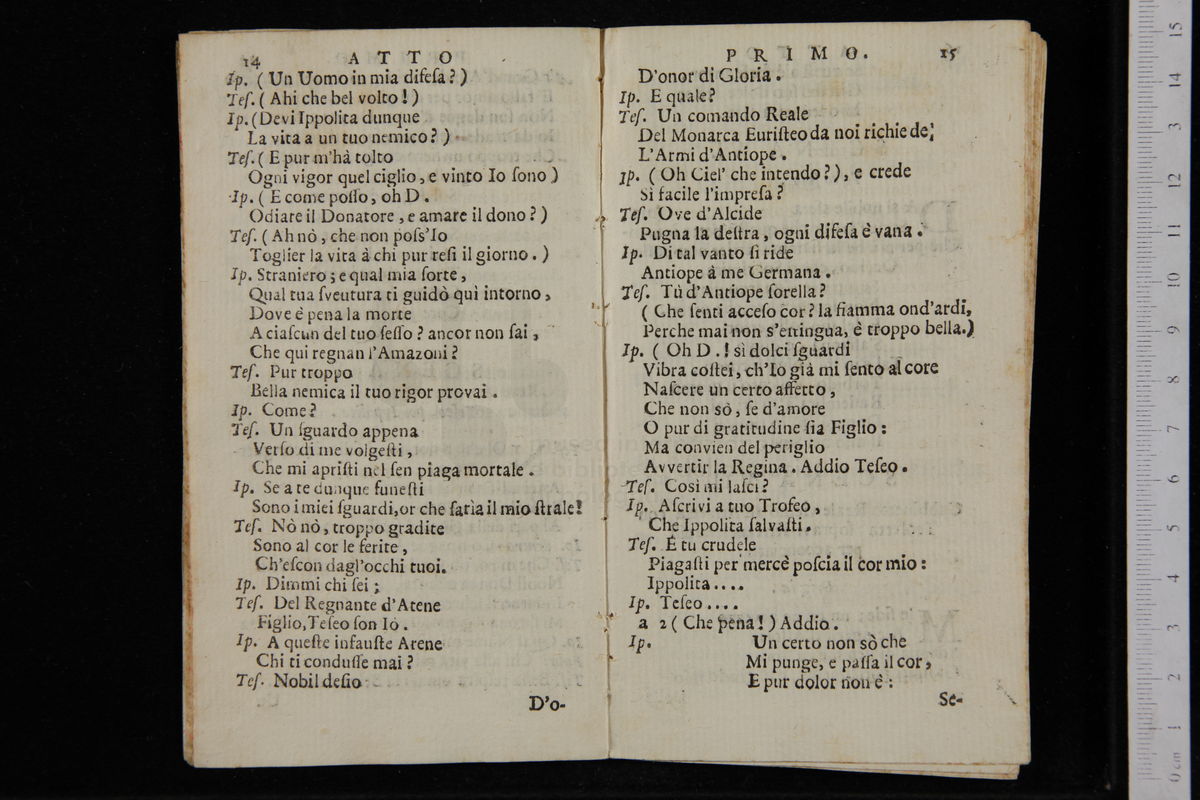 14 ATTO
Ip. ( Un Uomo in mia difeſa ? )
Teſ. ( Ahi che bel volto ! )
Ip. ( Devi Ippolita dunque
La vita a un tuo nemico ? )
Teſ. ( E pur m'hà tolto
Ogni vigor quel ciglio, e vinto Io ſono )
Ip. ( E come poſſo, oh D.
Odiare il Donatore, e amare il dono ? )
Teſ. ( Ah nò, che non poſs'Io
Toglier la vita à chi pur reſi il giorno. )
Ip. Straniero ; e qual mia ſorte,
Qual tua ſventura ti guidò quì intorno,
Dove è pena la morte
A ciaſcun del tuo ſeſſo ? ancor non ſai,
Che qui regnan l'Amazoni ?
Teſ. Pur troppo
Bella nemica il tuo rigor provai.
Ip. Come ?
Teſ. Un ſguardo appena
Verſo di me volgeſti,
Che mi apriſti nel ſen piaga mortale.
Ip. Se a te dunque funeſti
Sono i miei ſguardi, or che ſarìa il mio ſtrale!
Teſ. Nò nò, troppo gradite
Sono al cor le ferite,
Ch'eſcon dagl'occhi tuoi.
Ip. Dimmi chi ſei ;
Teſ. Del Regnante d'Atene
Figlio, Teſeo ſon Io.
Ip. A queſte infauſte Arene
Chi ti conduſſe mai ?
Teſ. Nobil deſio
D'o-
PRIMO. 15
D'onor di Gloria.
Ip. E quale ?
Teſ. Un comando Reale
Del Monarca Euriſteo da noi richiede,
L'Armi d'Antiope.
Ip. ( Oh Ciel' che intendo ? ), e crede
Sì facile l'impreſa ?
Teſ. Ove d'Alcide
Pugna la deſtra, ogni difeſa è vana.
Ip. Di tal vanto ſi ride
Antiope à me Germana.
Teſ. Tù d'Antiope ſorella ?
( Che ſenti acceſo cor ? la fiamma ond'ardi,
Perche mai non s'eſtingua, è troppo bella.)
Ip. ( Oh D. ! sì dolci ſguardi
Vibra coſtei, ch'Io già mi ſento al core
Naſcere un certo affetto,
Che non sò, ſe d'amore
O pur di gratitudine ſia Figlio :
Ma convien del periglio
Avvertir la Regina. Addio Teſeo.
Teſ. Così mi laſci ?
Ip. Aſcrivi a tuo Trofeo,
Che Ippolita ſalvaſti.
Teſ. E tu crudele
Piagaſti per mercè poſcia il cor mio :
Ippolita ....
Ip. Teſeo ....
a 2 ( Che pena ! ) Addio.
Ip. Un certo non sò che
Mi punge, e paſſa il cor,
E pur dolor non è :
Se-